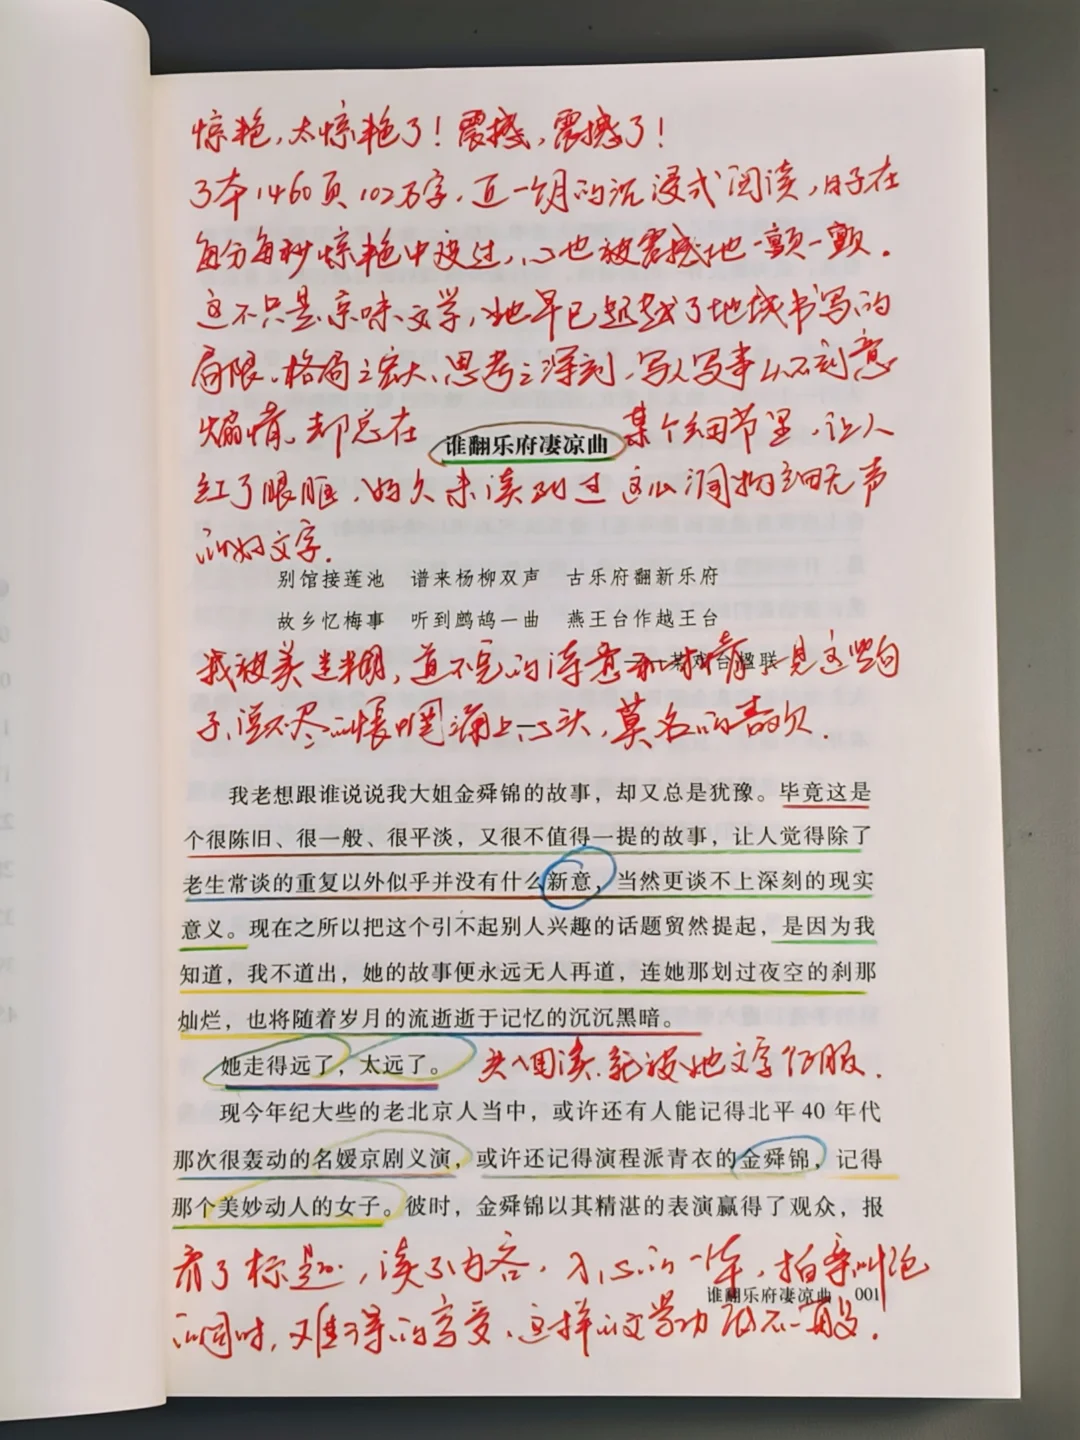 惊艳，太惊艳了！震撼，震撼了！
3本1460页102万字，近一个月的沉浸式阅读，日子在
每分每秒惊艳中度过，心也被震撼地一颤一颤。
这不只是京味文学，她早已超越了地域书写的
局限，格局之宏大，思考之深刻，写人写事从不刻意
煽情，却总在 某个细节里，让人
谁翻乐府凄凉曲
红了眼眶，好久未读到过这么润物细无声
的好文字。
别馆接莲池 谱来杨柳双声 古乐府翻新乐府
故乡忆梅事 听到鹧鸪一曲 燕王台作越王台
戏台楹联
我被美迷糊，道不完的诗意和才情，一见这些句
子，说不尽的怅惘涌上心头，莫名的喜欢。
我老想跟谁说说我大姐金舜锦的故事，却又总是犹豫。毕竟这是
个很陈旧、很一般、很平淡，又很不值得一提的故事，让人觉得除了
老生常谈的重复以外似乎并没有什么新意，当然更谈不上深刻的现实
意义。现在之所以把这个引不起别人兴趣的话题贸然提起，是因为我
知道，我不道出，她的故事便永远无人再道，连她那划过夜空的刹那
灿烂，也将随着岁月的流逝逝于记忆的沉沉黑暗。
她走得远了，太远了。 类回读，就被她文字征服。
现今年纪大些的老北京人当中，或许还有人能记得北平 40 年代
那次很轰动的名媛京剧义演，或许还记得演程派青衣的金舜锦，记得
那个美妙动人的女子。彼时，金舜锦以其精湛的表演赢得了观众，报
看了标题，读了内容，入心的一本，拍案叫绝
谁翻乐府凄凉曲 001
的同时，难得的享受，这样的文学功底不一般。